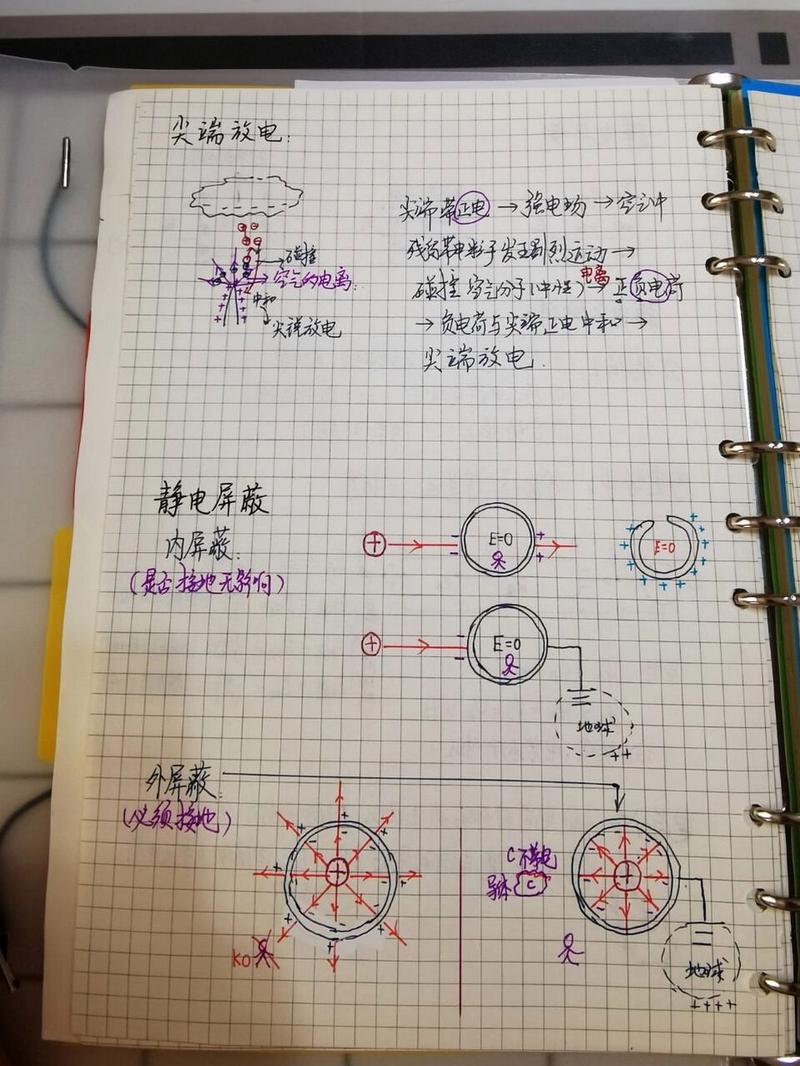 尖端放电:
尖端带正电→强电场→空气中
残留带电粒子发生剧烈运动→
碰撞空气分子(中性)→正负电荷
电离
→负电荷与尖端正电中和→
尖端放电.
碰撞
空气的电离
中和
尖端放电
静电屏蔽
内屏蔽:
(是否接地无影响)
E=0
E=0
E=0
地球
外屏蔽:
(必须接地)
KO
C不带电
导体
C
地球